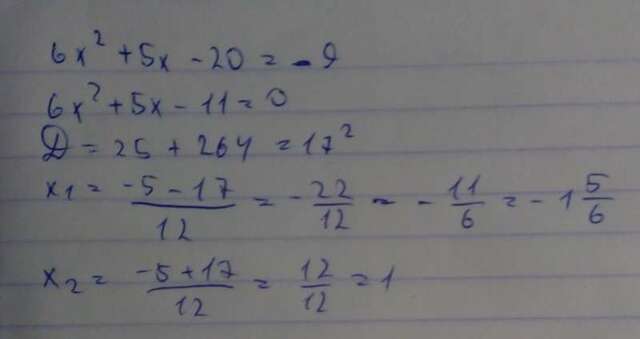 6x² + 5x - 20 = -9
6x² + 5x - 11 = 0
D = 25 + 264 = 17²
x₁ = (-5 - 17)/12 = -22/12 = -11/6 = -1 5/6
x₂ = (-5 + 17)/12 = 12/12 = 1